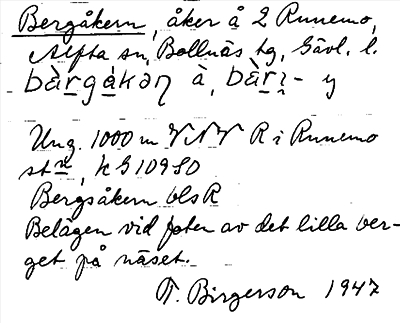 Bergåkern, åker å 2 Runemo,
Alfta sn, Bollnäs tg, Gävl. l.
bàrgåkəɳ à, bàrı- y
Ung. 1000 m VNV R i Runemo
stn, k G 10980
Bergsåkern blsR
Belägen vid foten av det lilla ber-
get på näset.
T. Birgerson 1947